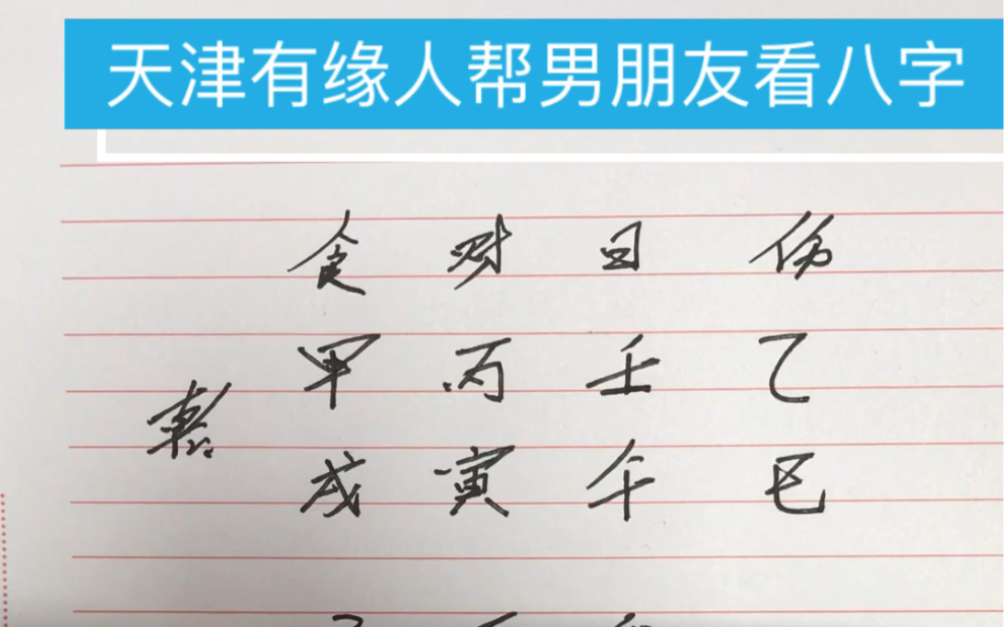 天津有缘人帮男朋友看八字
食 财 日 伤
甲 丙 壬 乙
乾
戌 寅 午 巳